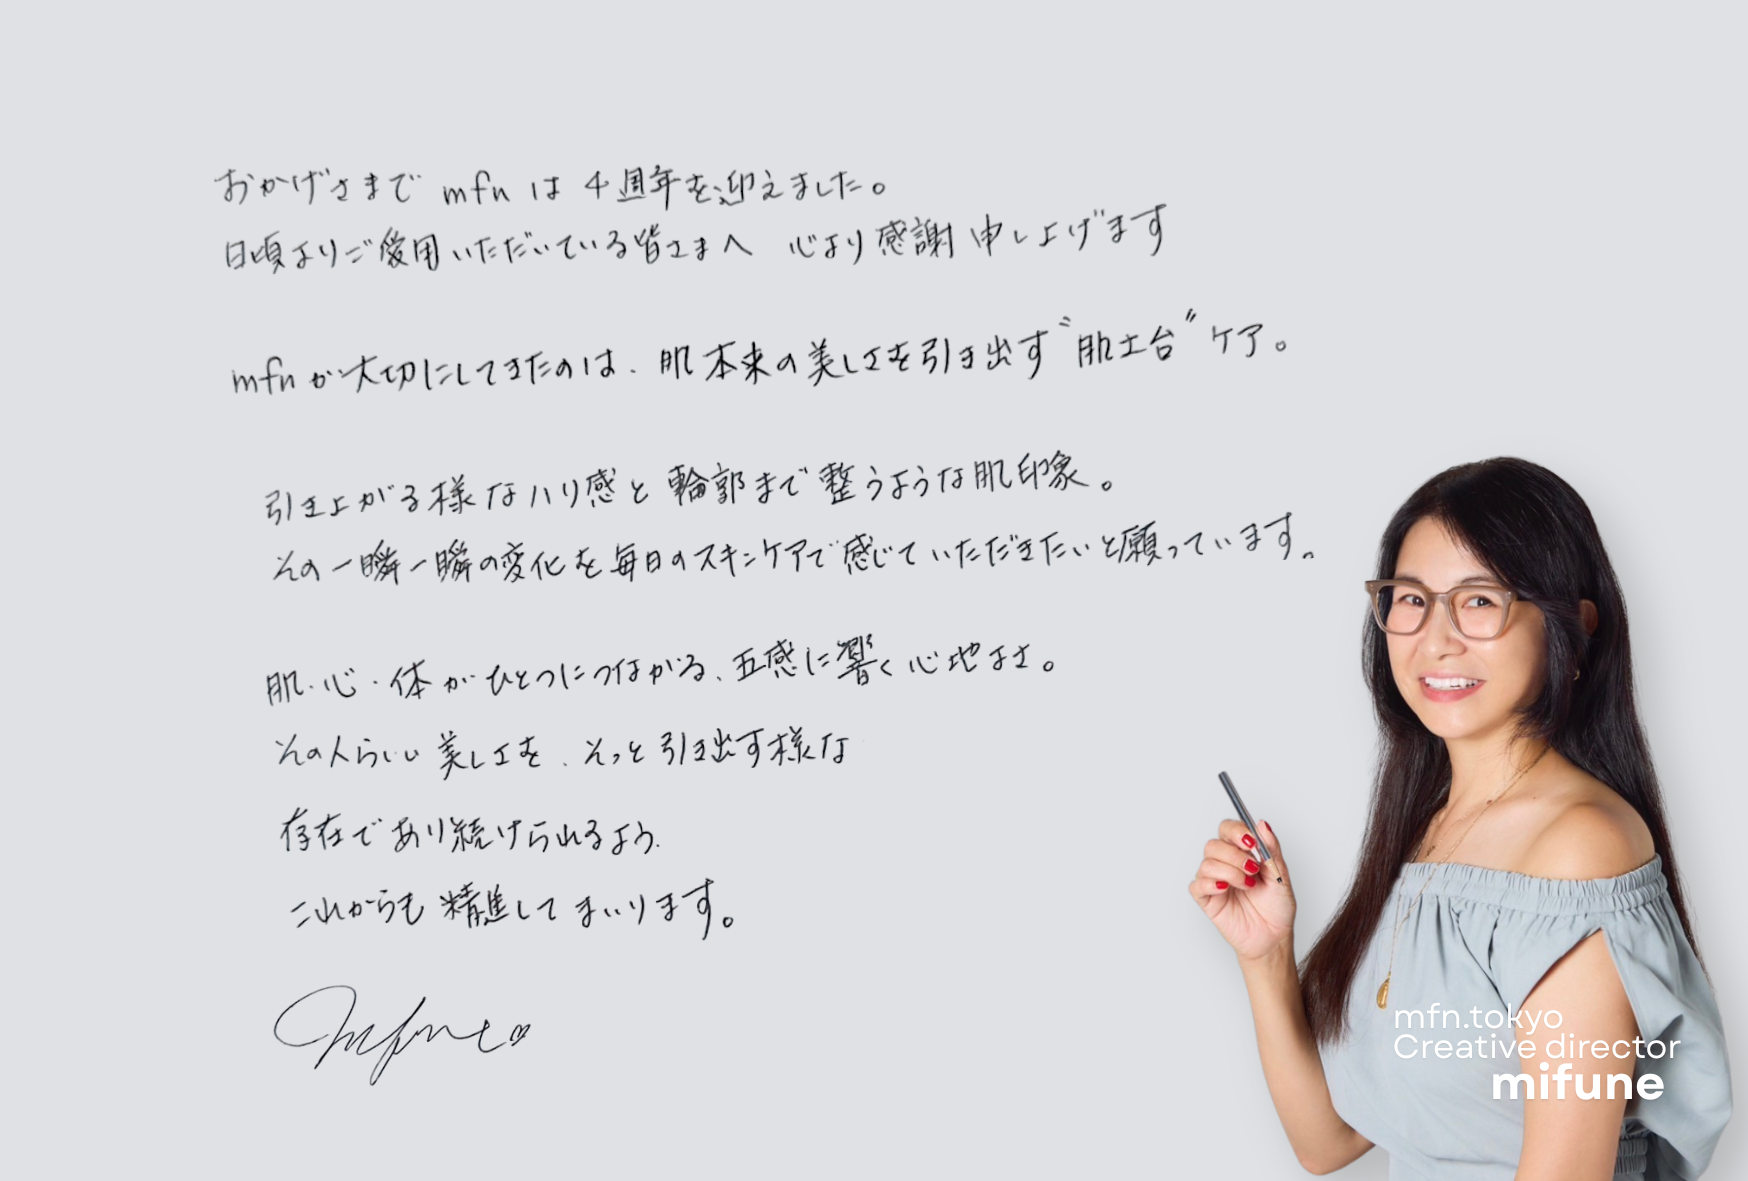 おかげさまで mfn は 4周年を迎えました。
日頃よりご愛用いただいている皆さまへ 心より感謝申し上げます
mfnが大切にしてきたのは、肌本来の美しさを引き出す“肌土台”ケア。
引き上がる様なハリ感と輪郭まで整うような肌印象。
その一瞬一瞬の変化を毎日のスキンケアで感じていただきたいと願っています。
肌・心・体がひとつにつながる、五感に響く心地よさ。
その人らしい美しさを、そっと引き出す様な
存在であり続けられるよう、
これからも精進してまいります。
mifune
mfn.tokyo
Creative director
mifune